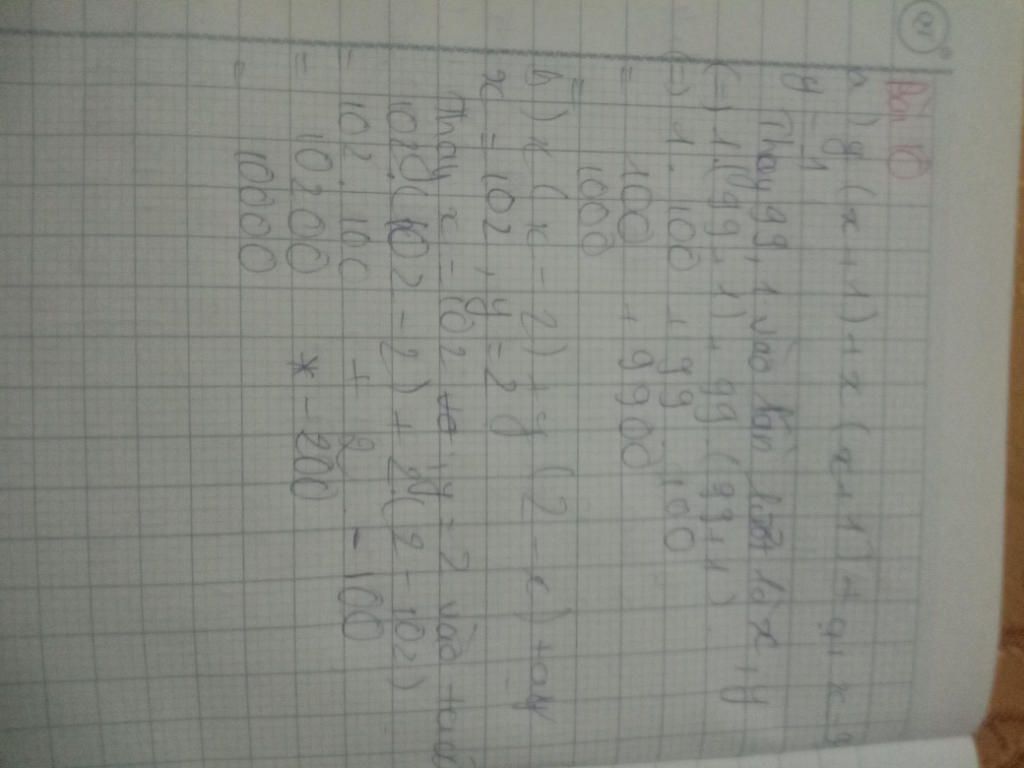 Bài 10
a) y(x+1)+x(x+1) tại x=9
y=1
Thay 99, 1 vào lần lượt là x + y
(=) 1.(99+1)+99.(99+1)
(=) 1. 100 + 99 100
= 100 + 9900
= 1000
b) x(x-2)+y(2-x) tại
x=102, y=2
Thay x=102 y=2 vào
102.(102-2)+2(2-102)
= 102.100 + 2 -100
= 10200 -200
= 10000